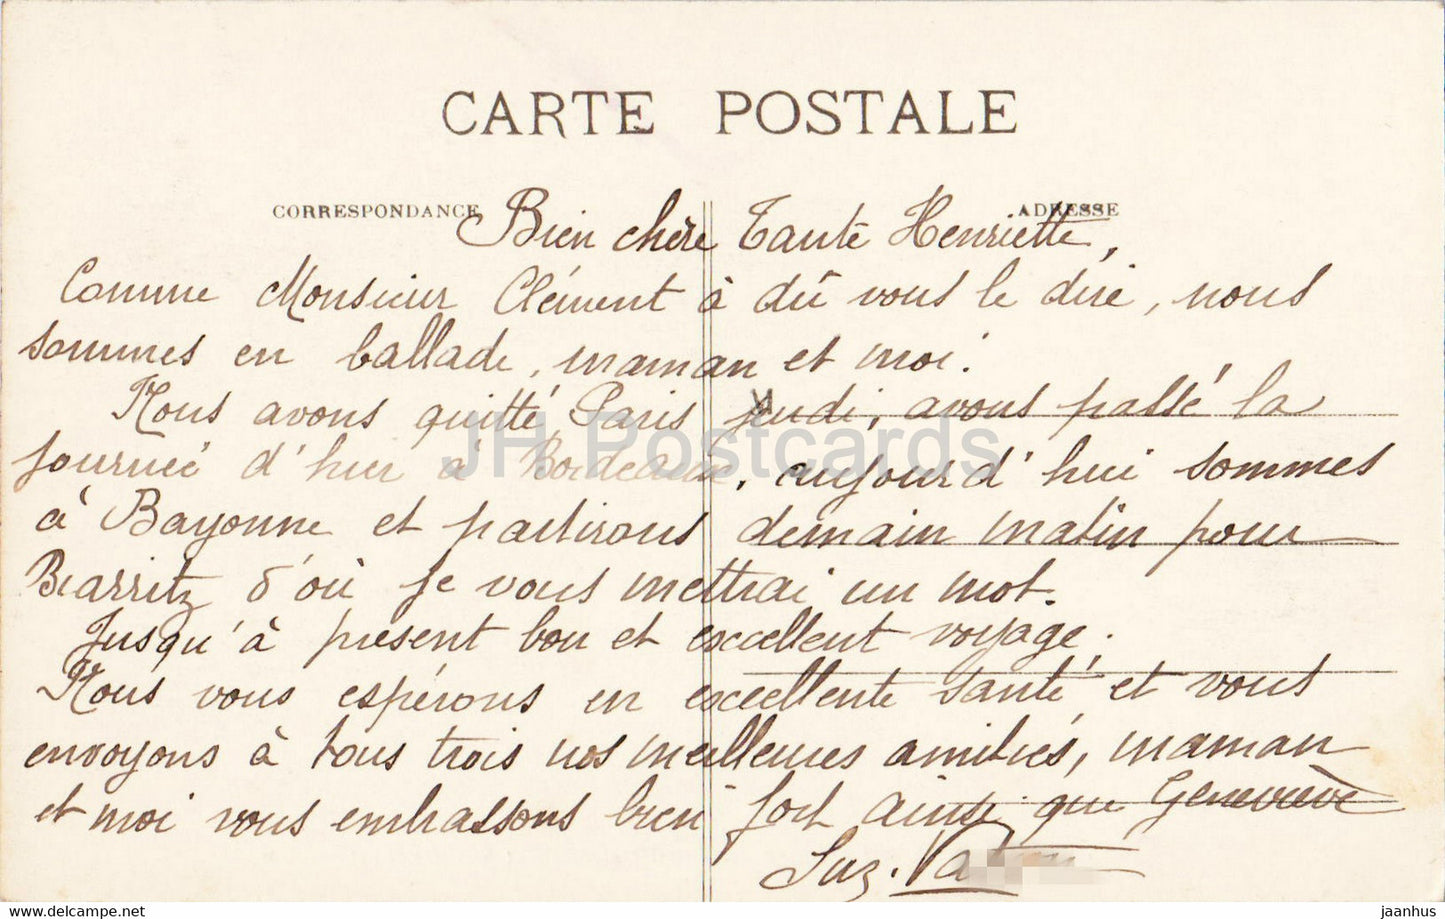 CARTE POSTALE
CORRESPONDANCE
ADRESSE
Bien chère Tante Henriette,
Comme Monsieur Clément à dû vous le dire, nous
sommes en ballade, maman et moi.
Nous avons quitté Paris jeudi, avons passé la
journée d'hier à Bordeaux, aujourd'hui sommes
à Bayonne et partirons demain matin pour
Biarritz d'où je vous mettrai un mot.
Jusqu'à présent bon et excellent voyage.
Nous vous espérons en excellente santé et vous
envoyons à tous trois nos meilleures amitiés, maman
et moi vous embrassons bien fort ainsi que Geneviève
Suz.
JH Postcards
www.delcampe.net
jaanhus